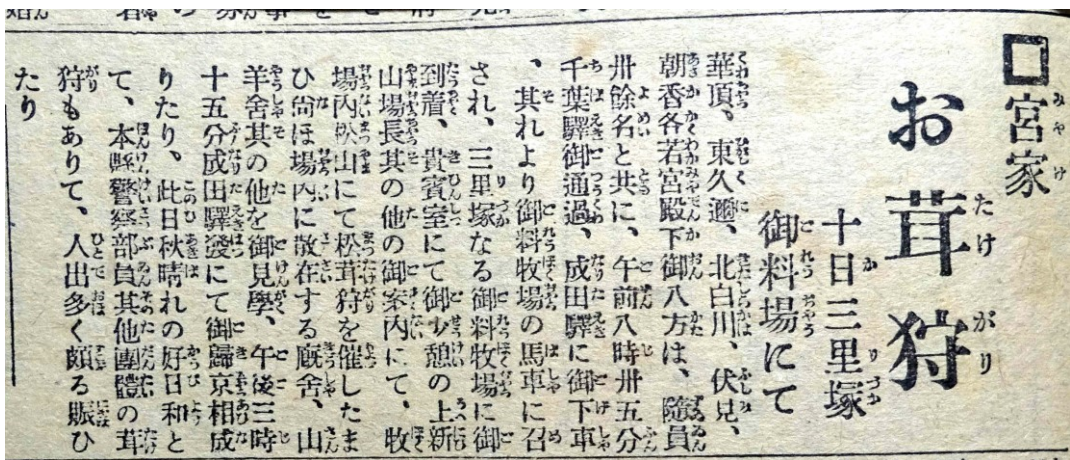 □宮家
お茸狩
十日三里塚
御料場にて
華頂、東久邇、北白川、伏見、
朝香各若宮殿下御八方は、隨員
卅餘名と共に、午前八時卅五分
千葉驛御通過、成田驛に御下車
、其れより御料牧場の馬車に召
され、三里塚なる御料牧場に御
到着、貴賓室にて御少憩の上新
山場長其の他の御案内にて、牧
場內松山にて松茸狩を催したま
ひ尙ほ場內に散在する廐舍、山
羊舍其の他を御見學、午後三時
十五分成田驛發にて御歸京相成
りたり、此日秋晴れの好日和と
て、本縣警察部員其他團體の茸
狩もありて、人出多く頗る賑ひ
たり